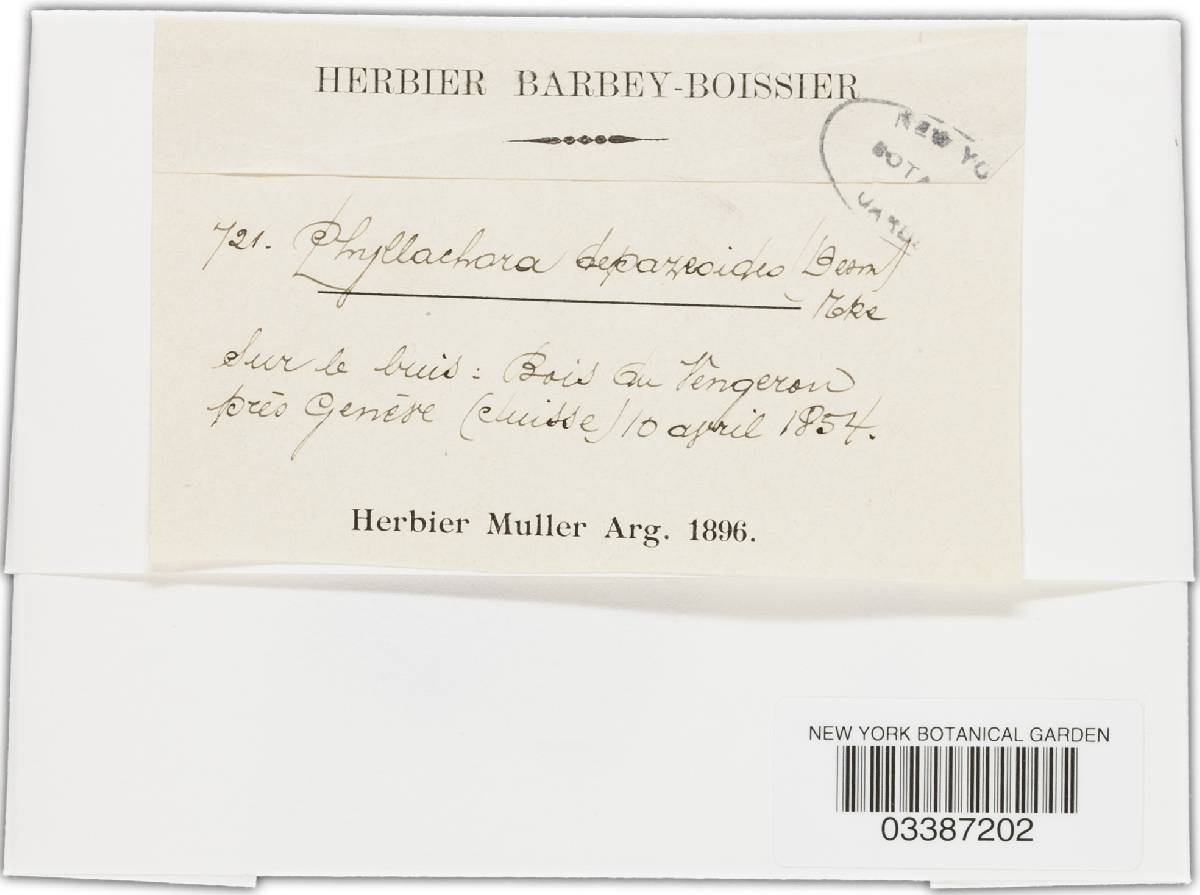 HERBIER BARBEY-BOISSIER
NEW YO
BOTA
GARD
721. Phyllachora depazeoides (Desm)
Nke
Sur le buis : Bois du Vengeron
près Genève (Suisse) 10 avril 1854.
Herbier Muller Arg. 1896.
NEW YORK BOTANICAL GARDEN
03387202